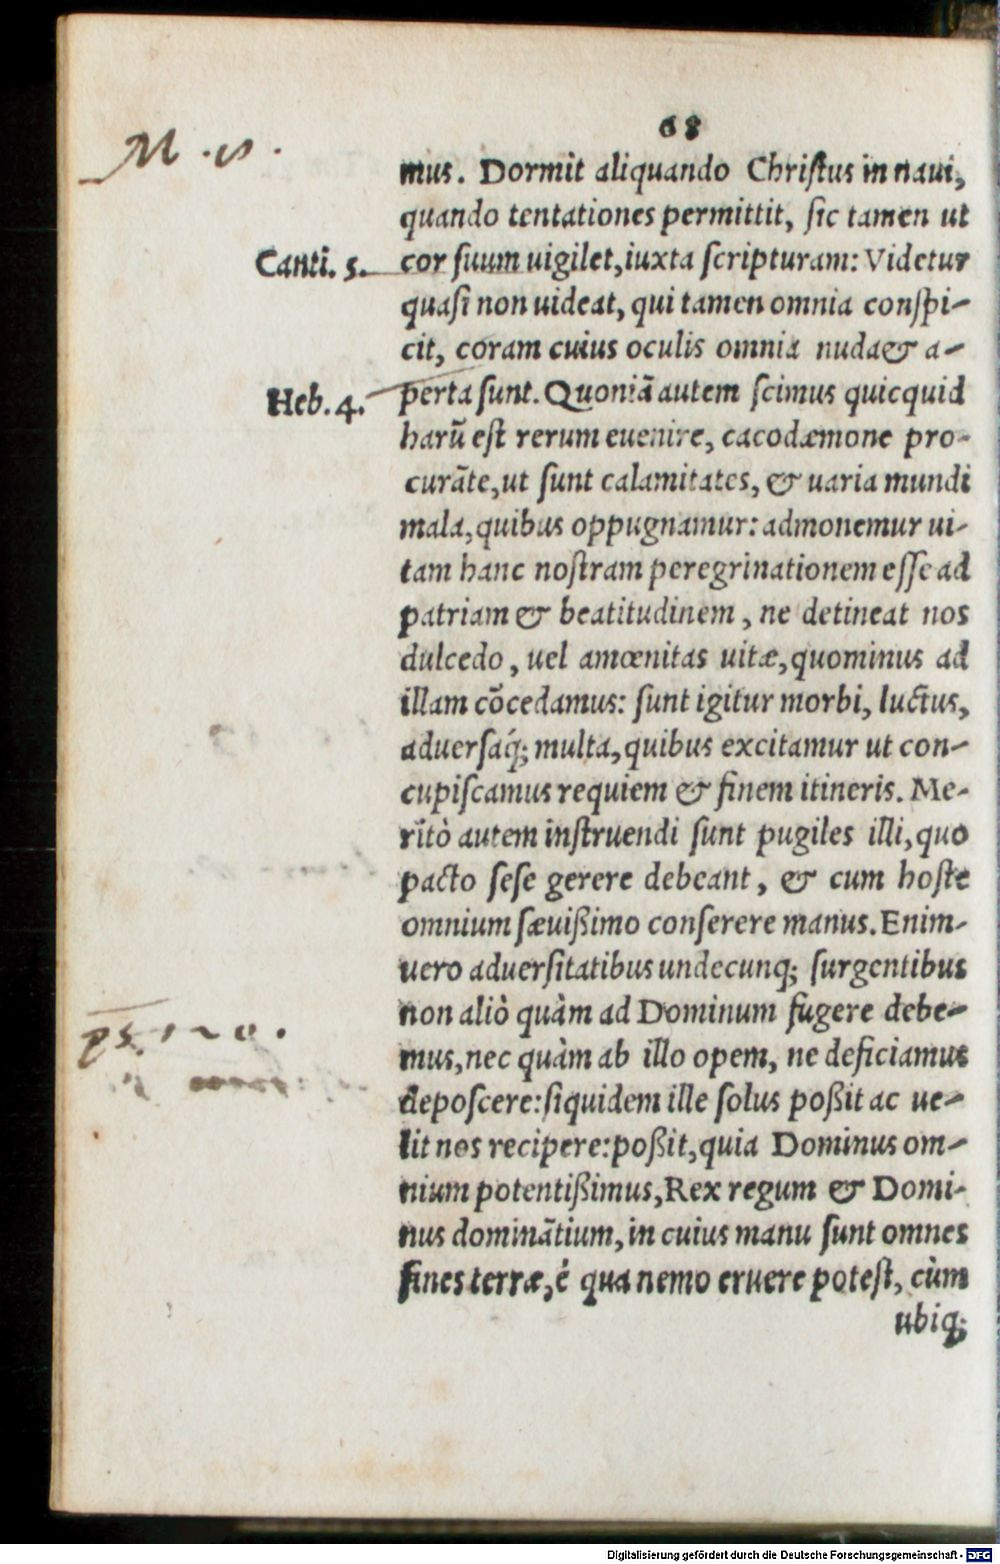 68
mus. Dormit aliquando Christus in naui,
quando tentationes permittit, sic tamen ut
Canti. 5.
cor suum uigilet, iuxta scripturam: Videtur
quasi non uideat, qui tamen omnia conspi-
cit, coram cuius oculis omnia nuda & a-
Heb. 4.
perta sunt. Quoniã autem scimus quicquid
harũ est rerum euenire, cacodæmone pro-
curãte, ut sunt calamitates, & uaria mundi
mala, quibus oppugnamur: admonemur ui-
tam hanc nostram peregrinationem esse ad
patriam & beatitudinem, ne detineat nos
dulcedo, uel amœnitas uitæ, quominus ad
illam cõcedamus: sunt igitur morbi, luctus,
aduersaq́; multa, quibus excitamur ut con-
cupiscamus requiem & finem itineris. Me-
ritò autem instruendi sunt pugiles illi, quo
pacto sese gerere debeant, & cum hoste
omnium sæuißimo conserere manus. Enim-
uero aduersitatibus undecunq; surgentibus
non aliò quàm ad Dominum fugere debe-
mus, nec quàm ab illo opem, ne deficiamus
deposcere: siquidem ille solus poßit ac ue-
lit nos recipere: poßit, quia Dominus om-
nium potentißimus, Rex regum & Domi-
nus dominãtium, in cuius manu sunt omnes
fines terræ, è qua nemo eruere potest, cùm
ubiq;
Digitalisierung gefördert durch die Deutsche Forschungsgemeinschaft - DFG